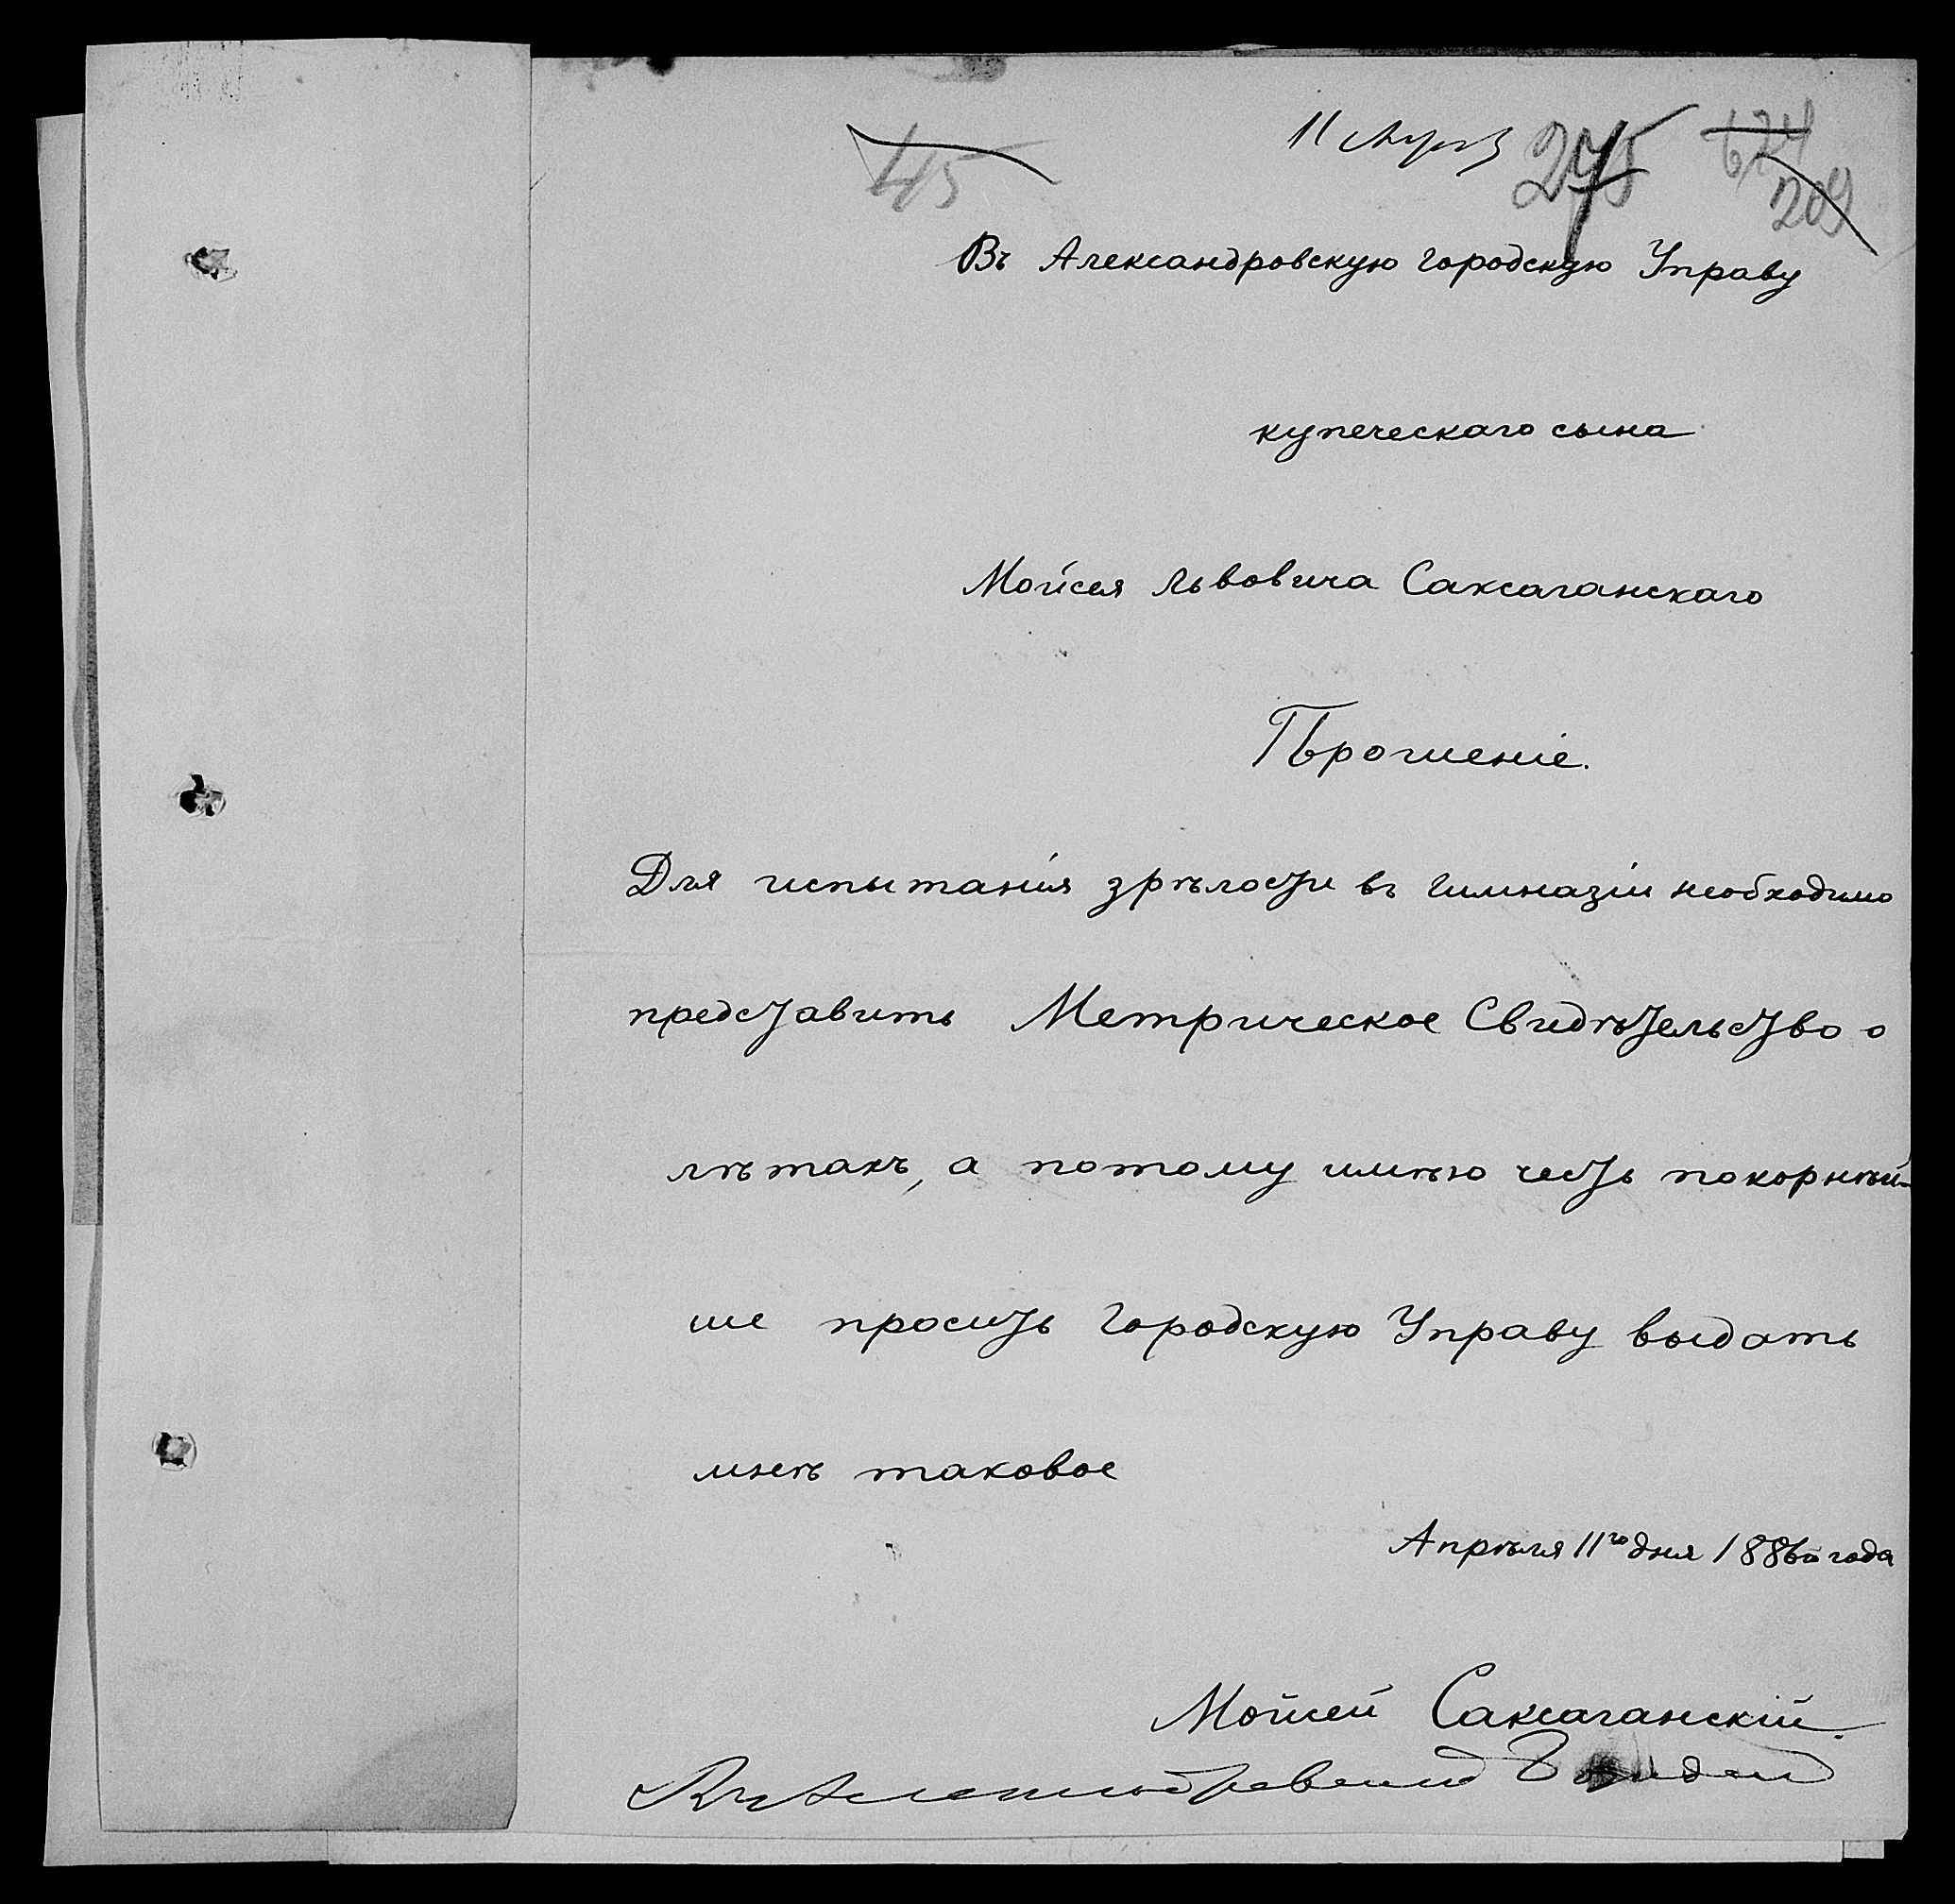 45
11 Апр
275 624
209
Въ Александровскую Городскую Управу
купеческаго сына
Мойсея Львовича Саксаганскаго
Прошеніе.
Для испытанія зрѣлости въ Гимназіи необходимо
представить Метрическое Свидѣтельство о
лѣтахъ, а потому имѣю честь покорнѣй-
ше просить Городскую Управу выдать
мнѣ таковое
Апрѣля 11го дня 1886го года
Мойсей Саксаганскій.